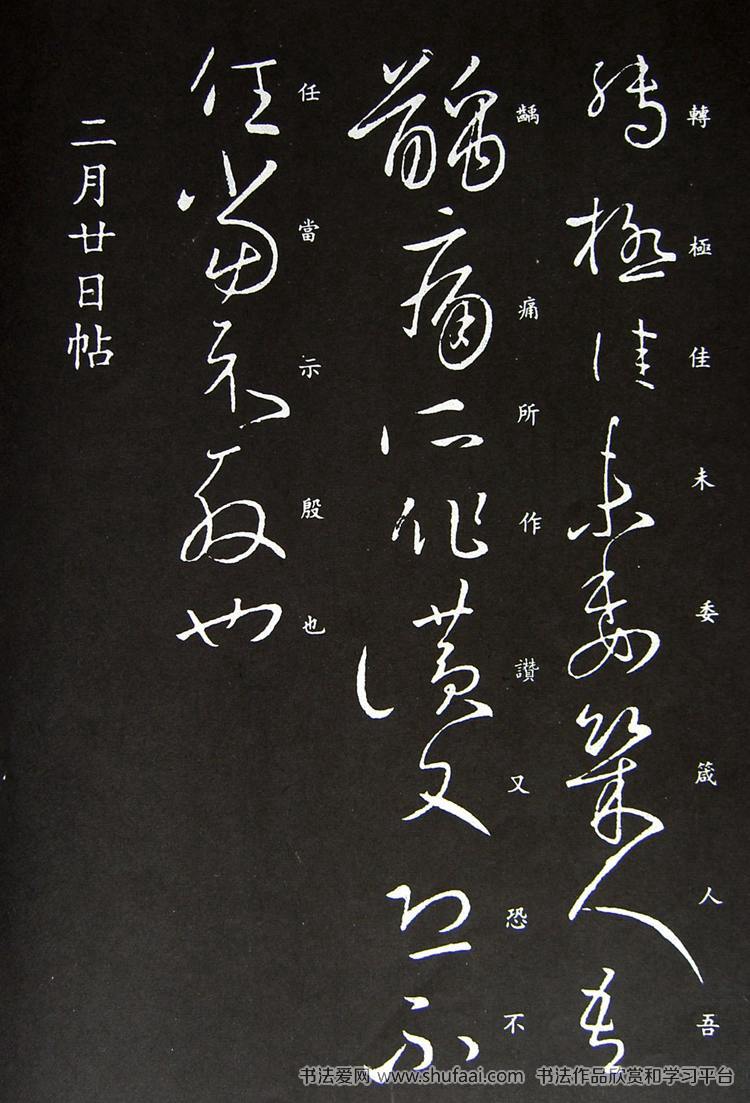 轉極佳未委箴人吾
齲痛所作讚又恐不
任當示殷也
二月廿日帖
书法爱网 www.shufaai.com 书法作品欣赏和学习平台